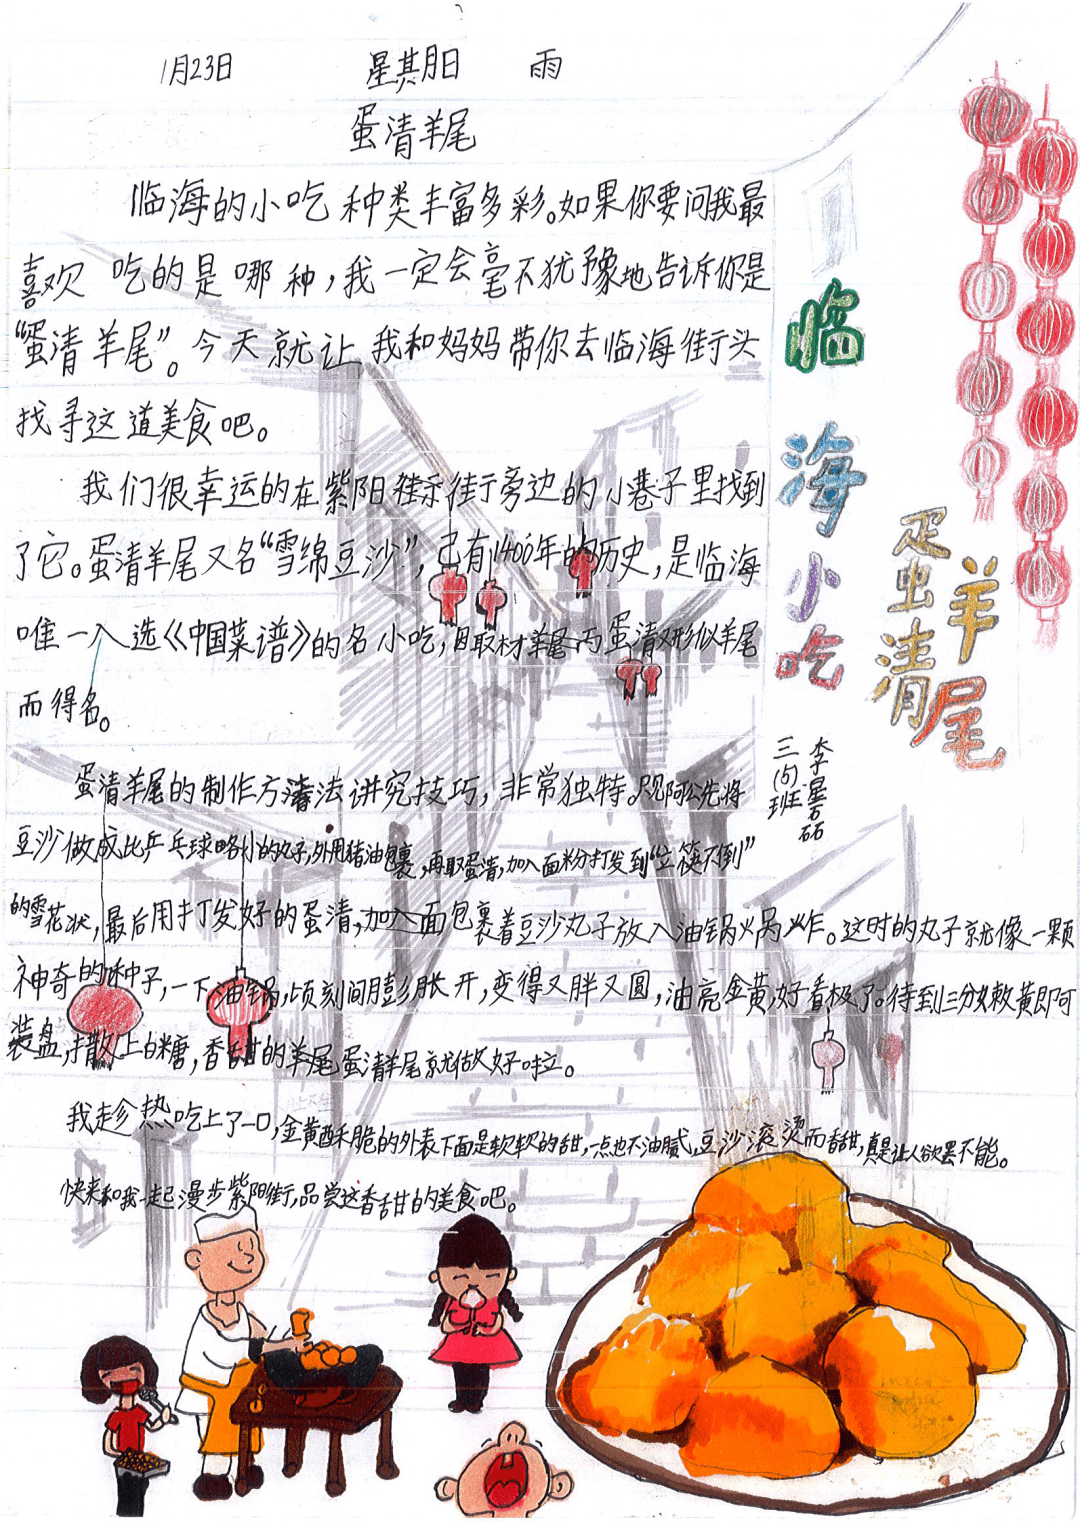 1月23日 星期日 雨
蛋清羊尾
临海的小吃种类丰富多彩。如果你要问我最
喜欢吃的是哪种，我一定会毫不犹豫地告诉你是
“蛋清羊尾”。今天就让我和妈妈带你去临海街头
找寻这道美食吧。
我们很幸运的在紫阳街旁边的小巷子里找到
了它。蛋清羊尾又名“雪绵豆沙”，已有1400年的历史，是临海
唯一入选《中国菜谱》的名小吃，因取材羊尾丙蛋清又形似羊尾
而得名。
蛋清羊尾的制作方法讲究技巧，非常独特。只见阿公先将
豆沙做成比乒乓球略小的丸子，外用猪油包裹，再取蛋清，加入面粉打发到“立筷不倒”
的雪花状，最后用打发好的蛋清，加入面包裹着豆沙丸子放入油锅火锅炸。这时的丸子就像一颗
神奇的种子，一下油锅，顷刻间膨胀开，变得又胖又圆，油亮金黄，好看极了。待到三分嫩黄即可
装盘，撒上白糖，香甜的羊尾蛋清羊尾就做好啦。
我趁热吃上了一口，金黄酥脆的外表下面是软软的甜，一点也不油腻，豆沙滚烫而香甜，真是让人欲罢不能。
快来和我一起漫步紫阳街，品尝这香甜的美食吧。
临海小吃
蛋清羊尾
三(5)班
李星硕